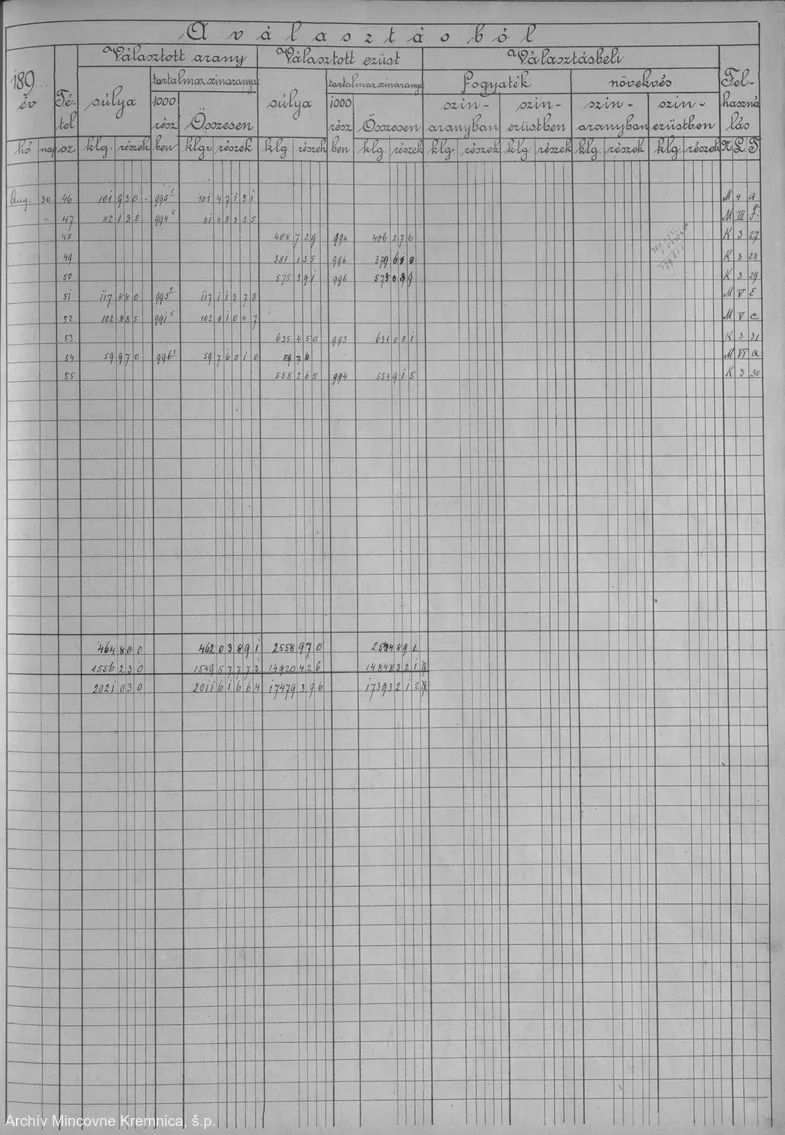 A választásból
Választott arany Választott ezüst Választásbeli
189 év Tétel sz. súlya tartalmaz színaranyat súlya tartalmaz színaranyat fogyaték növekvés Felhasználás
1000 részben Összesen 1000 részben Összesen szín-aranyban szín-ezüstben szín-aranyban szín-ezüstben
hó nap klg. részek klgr részek klg részek klg. részek klg. részek klg. részek klg. részek klg. részek K. L. T.
Aug. 30 46 101 930 995⁵ 101 47131 M 4 a
" 47 82 135 994⁵ 81 68325 M III f.
48 408 729 994 406 276 K 3 27
49 381 135 996 379 610 K 3 28
50 575 391 996 573 089 K 3 29
51 117 880 993⁵ 117 11378 M V E
52 102 885 991⁵ 102 01047 M V c
53 635 450 993 631 001 K 3 31
54 59 970 996⁵ 59 76010 M VI a
55 558 265 994 554 915 K 3 30
464 800 462 03891 2558 970
1556 230 1549 57773 14920 426 14848 321
2021 030 2011 61664 17479 396
Archív Mincovne Kremnica, š.p.